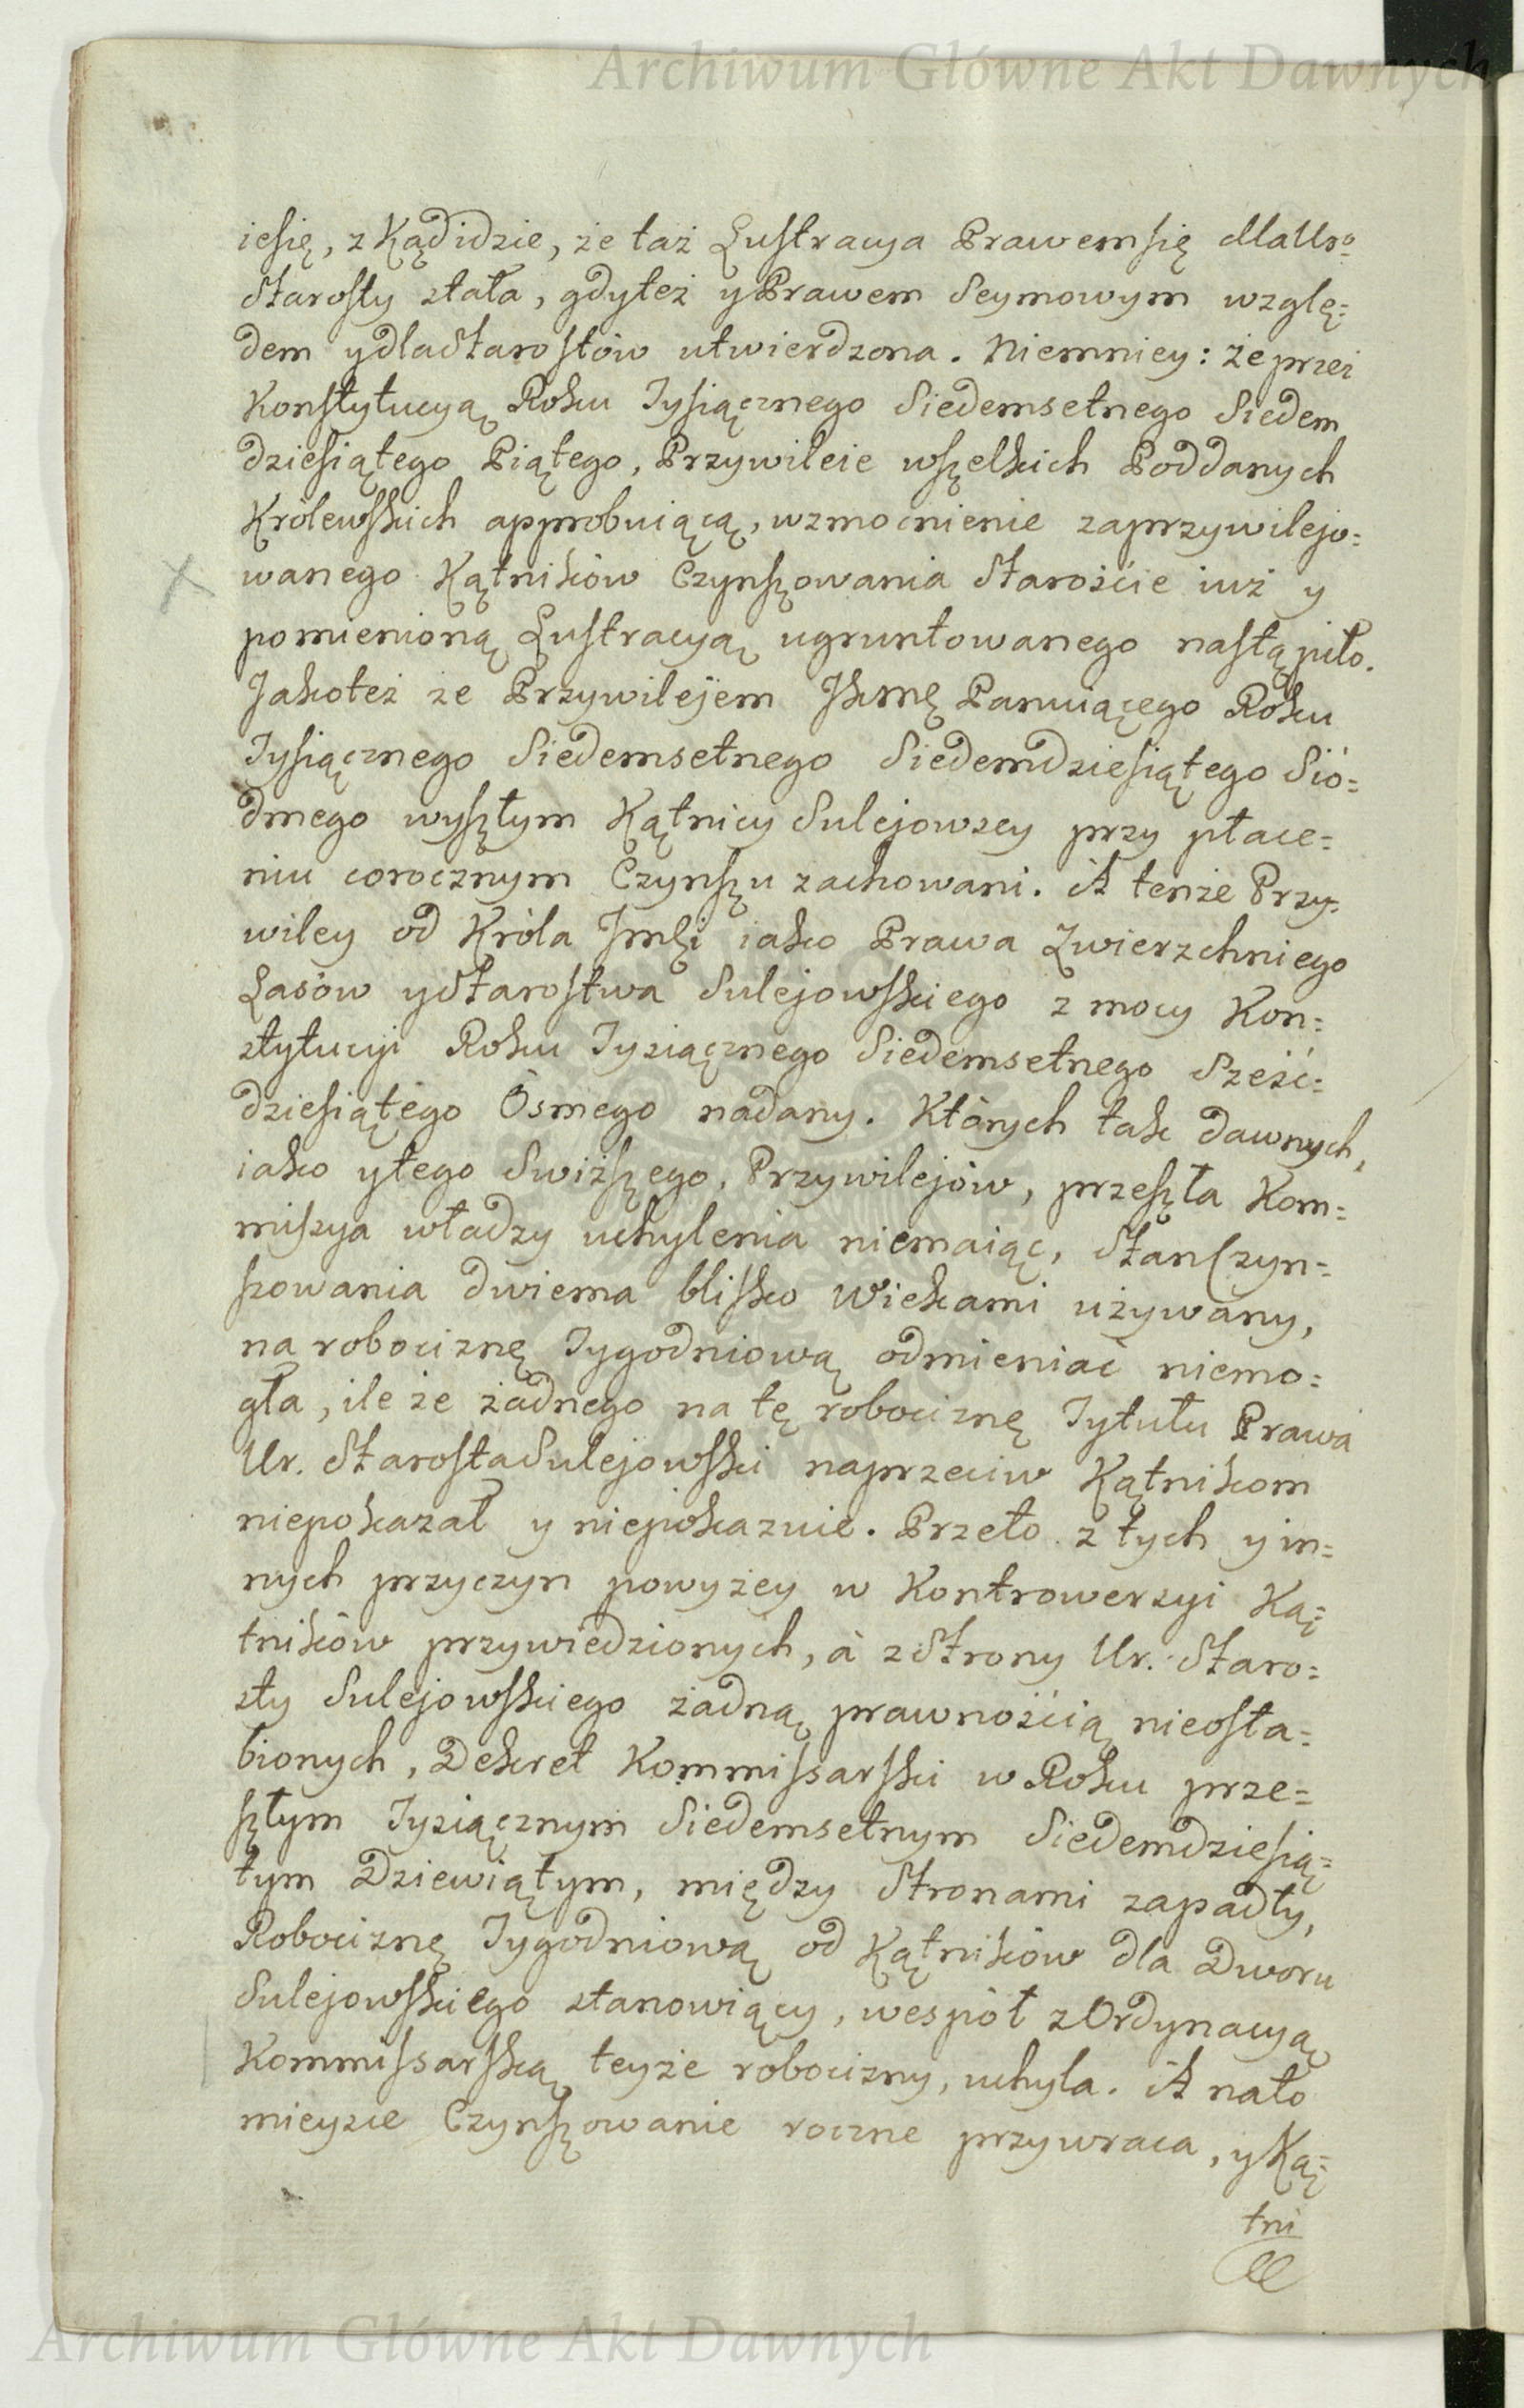 Archiwum Główne Akt Dawnych
iesię, zKądidzie, że taż Lustracya Prawemsię dla Ur:
Starosty stała, gdyteż yPrawem Seymowym wzglę=
dem ydlaStarostów utwierdzona. Niemniey: że przez
Konstytucyą Roku Tysiącznego Siedemsetnego Siedem
dziesiątego Piątego, Przywileie wszelkich Poddanych
Królewskich approbuiącą, wzmocnienie zaprzywilejo=
wanego Kątników Czynszowania Starościе iuż y
pomienioną Lustracyą ugruntowanego nastąpiło.
Jakoteż że Przywilejem JKMci Panuiącego Roku
Tysiącznego Siedemsetnego Siedemdziesiątego Sió=
dmego wyszłym Kątnicy Sulejowscy przy płace=
niu corocznym Czynszu zachowani. A tenże Przy=
wiley od Króla Jmći iako Prawa Zwierzchniego
Lasów yStarostwa Sulejowskiego z mocy Kon=
stytucyi Roku Tysiącznego Siedemsetnego Sześć=
dziesiątego Osmego nadany. Których tak dawnych,
iako ytego Swiższego, Przywilejów, przeszła Kom=
missya władzy uchylenia niemaiąc, StanCzyn=
szowania dwiema blisko Wiekami używany,
na robociznę Tygodniową odmieniać niemo=
gła, ile że żadnego na tę robociznę Tytułu Prawa
Ur. StarostaSulejowski naprzeciw Kątnikom
niepokazał y niepokazuie. Przeto z tych y in=
nych przyczyn powyżey w Kontrowersyi Ką=
tników przywiedzionych, à zStrony Ur. Staro=
sty Sulejowskiego żadną prawnością nieosła=
bionych, Dekret Kommissarski w Roku prze=
szłym Tysiącznym Siedemsetnym Siedemdziesią=
tym Dziewiątym, między Stronami zapadły,
Robociznę Tygodniową od Kątników dla Dworu
Sulejowskiego stanowiący, wespół zOrdynacyą
Kommissarską teyże robocizny, uchyla. A nato
mieysce Czynszowanie roczne przywraca, y Ką=
tni
Archiwum Główne Akt Dawnych